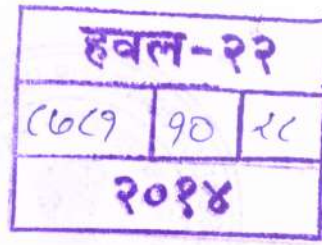 हवल-२२
८७८१ १० २८
२०१४